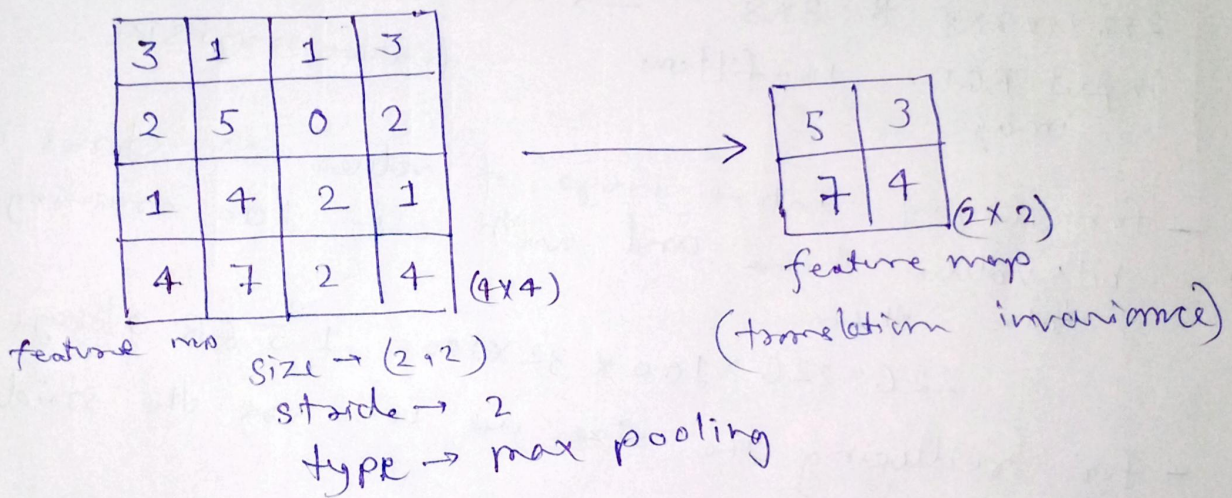 3 1 1 3
2 5 0 2
1 4 2 1
4 7 2 4 (4x4)
feature mp
size → (2,2)
stride → 2
type → max pooling
5 3
7 4 (2x2)
feature map
(translation invariance)